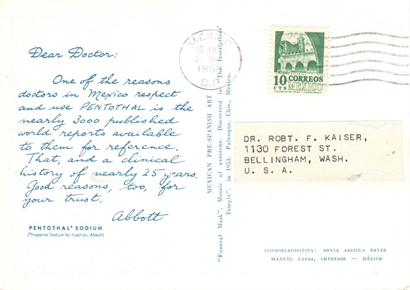 Dear Doctor:
One of the reasons
doctors in Mexico respect
and use PENTOTHAL is the
nearly 3000 published
world reports available
to them for reference.
That, and a clinical
history of nearly 25 years.
Good reasons, too, for
your trust.
Abbott
PENTOTHAL® SODIUM
(Thiopental Sodium for Injection, Abbott)
MEXICAN PRE-SPANISH ART
"Funeral Mask". Mosaic of
Discovered in "The Inscriptions
Temple". in 1952. Palenque, Chis., Mexico.
MEXICO
D.F.
10 CORREOS
CTS MEXICO
DR. ROBT. F. KAISER,
1130 FOREST ST.
BELLINGHAM, WASH.
U. S. A.
MANUEL CASAS, IMPRESOR — MÉXICO